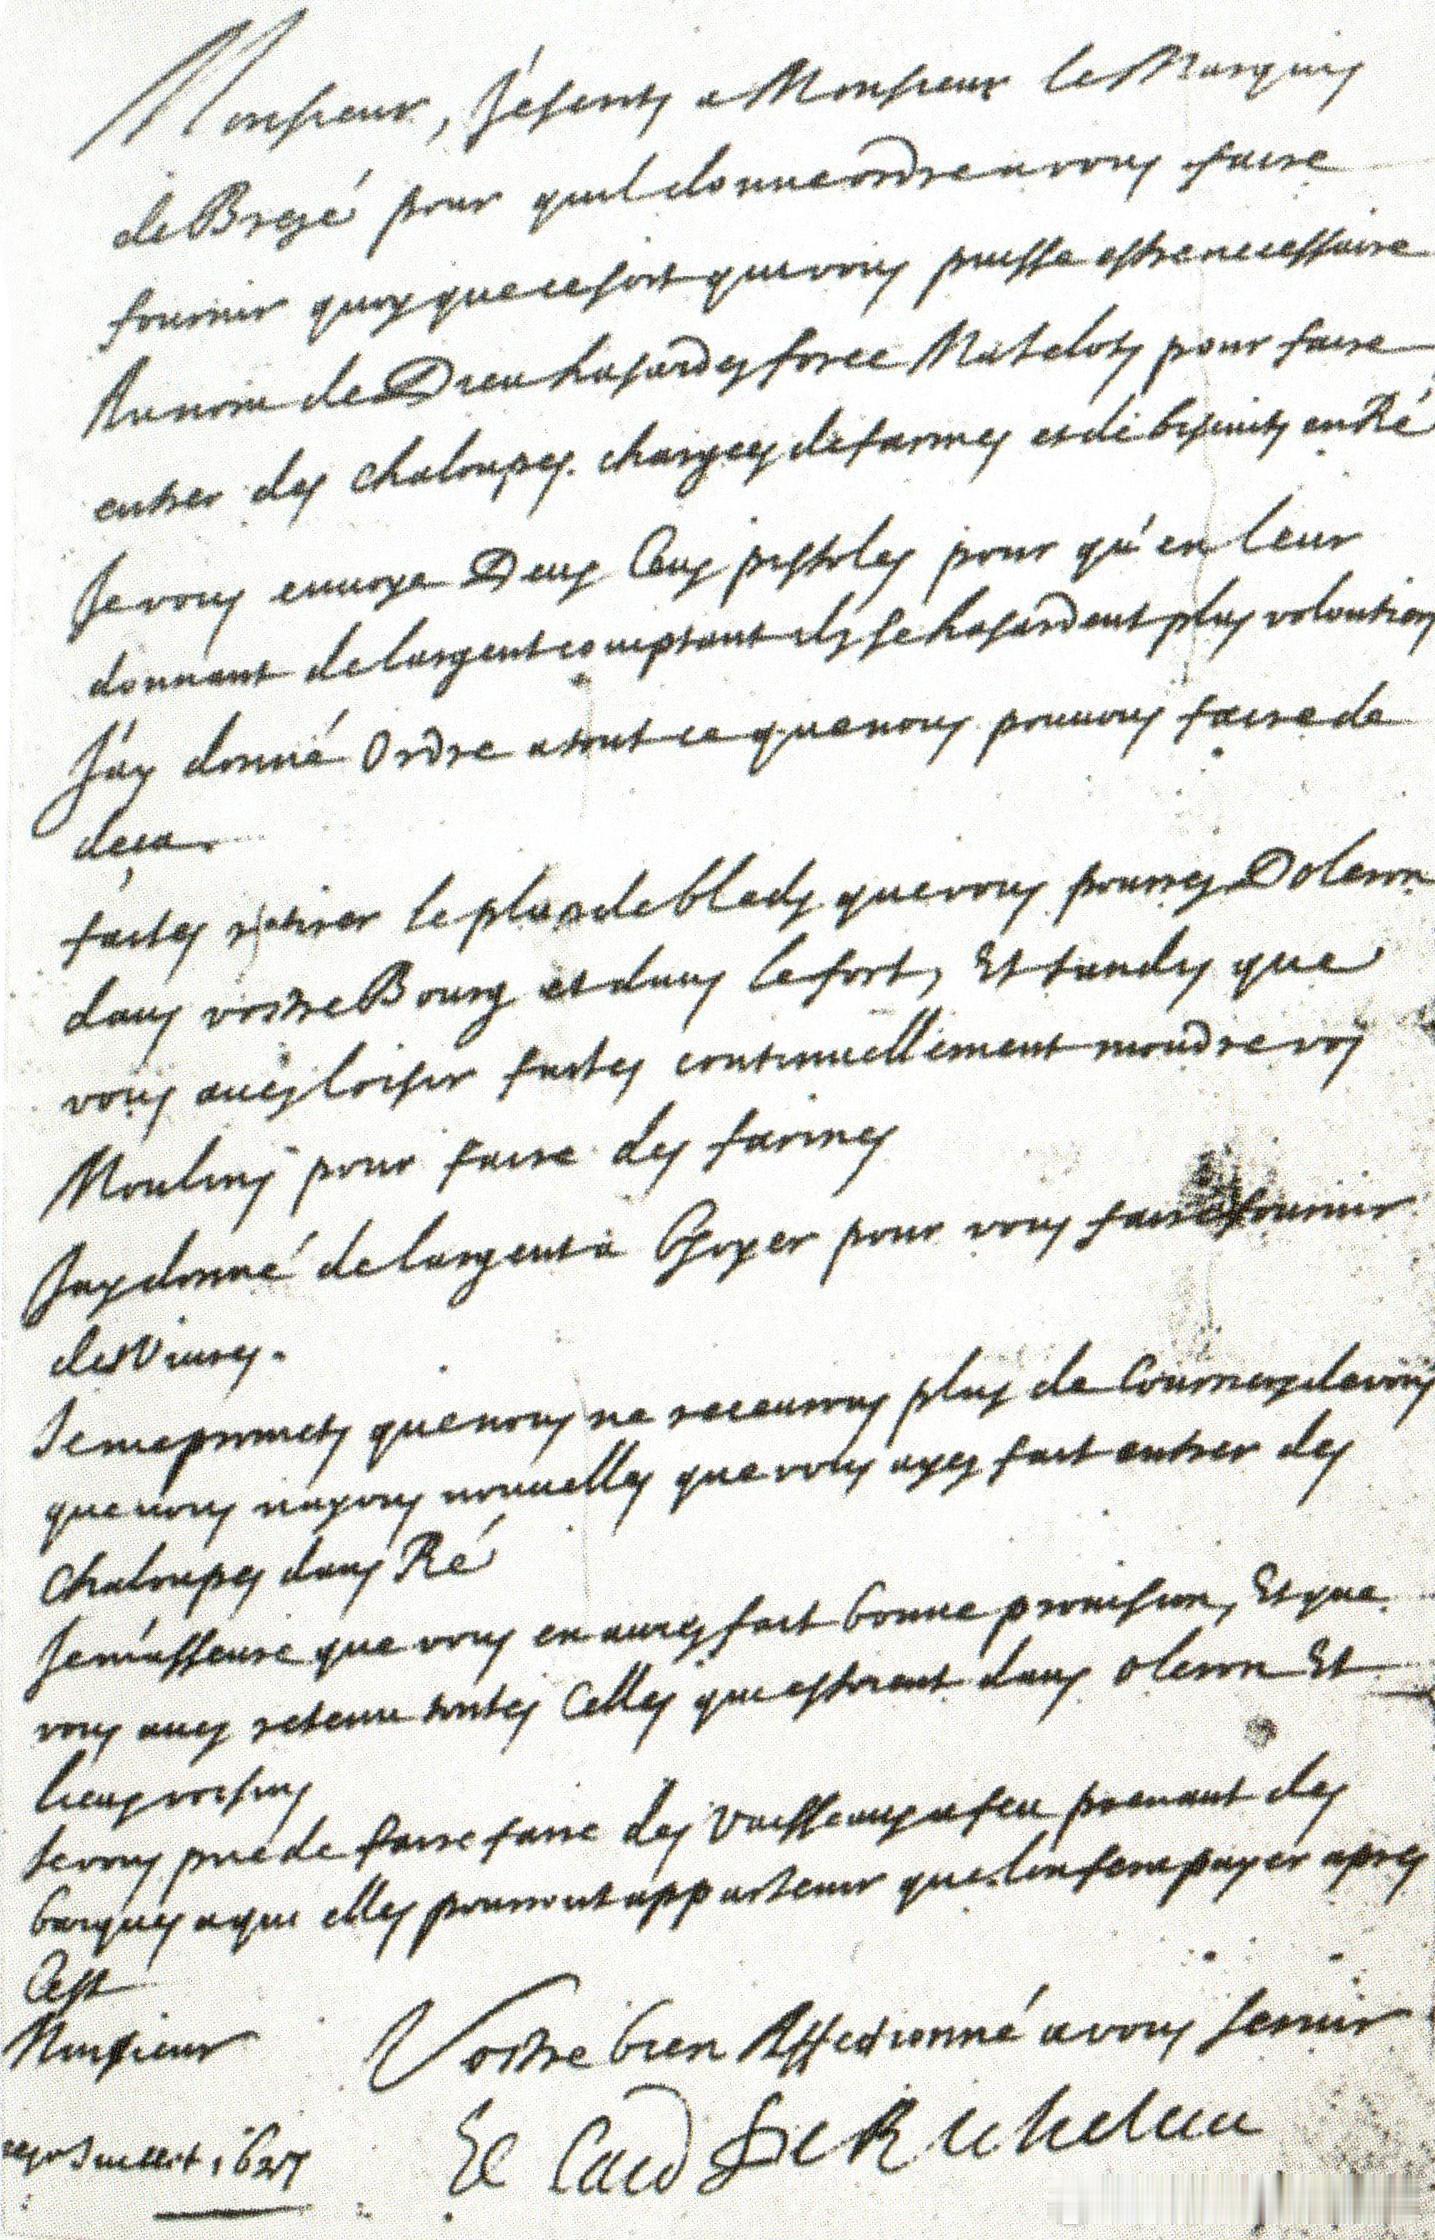 Monsieur, J'escrits a Monsieur le Marquis
de Brezé pour quil donne ordre a vous faire
fournir quoy que ce soit que vous puisse estre necessaire
Au nom de Dieu hasardes force Matelots pour faire
entrer des chaloupes chargees de farines et de biscuits en Ré
Je vous enuoye Deux Cens pistoles pour qu'en leur
donnant de largent comptant ils se hasardent plus volontiers
J'ay donné Ordre a tout ce que nous pouuons faire de
deça.
faictes retirer le plus de bleds que vous pourres Doleron
dans vostre Bourg et dans le fort, Et tandis que
vous aues loisir faites continuellement moudre vos
Moulins pour faire des farines
Jay donné de largent a pour vous faire fournir
des Viures.
Je me promets que nous ne receurons plus de Courriers de vous
que nous nayons nouuelles que vous ayes fait entrer des
Chaloupes dans Ré
Je m'asseure que vous en aures fait bonne prouision, Et que
vous aues retenu toutes Celles qui estoient dans oleron Et
lieux voisins
Je vous prie de faire faire des Vaisseaux a feu prenant des
barques a qui elles pourront appartenir que len feray payer apres
Cest
Monsieur Vostre bien Affectionné a vous seruir
Le Card de Richelieu
Juillet 1627